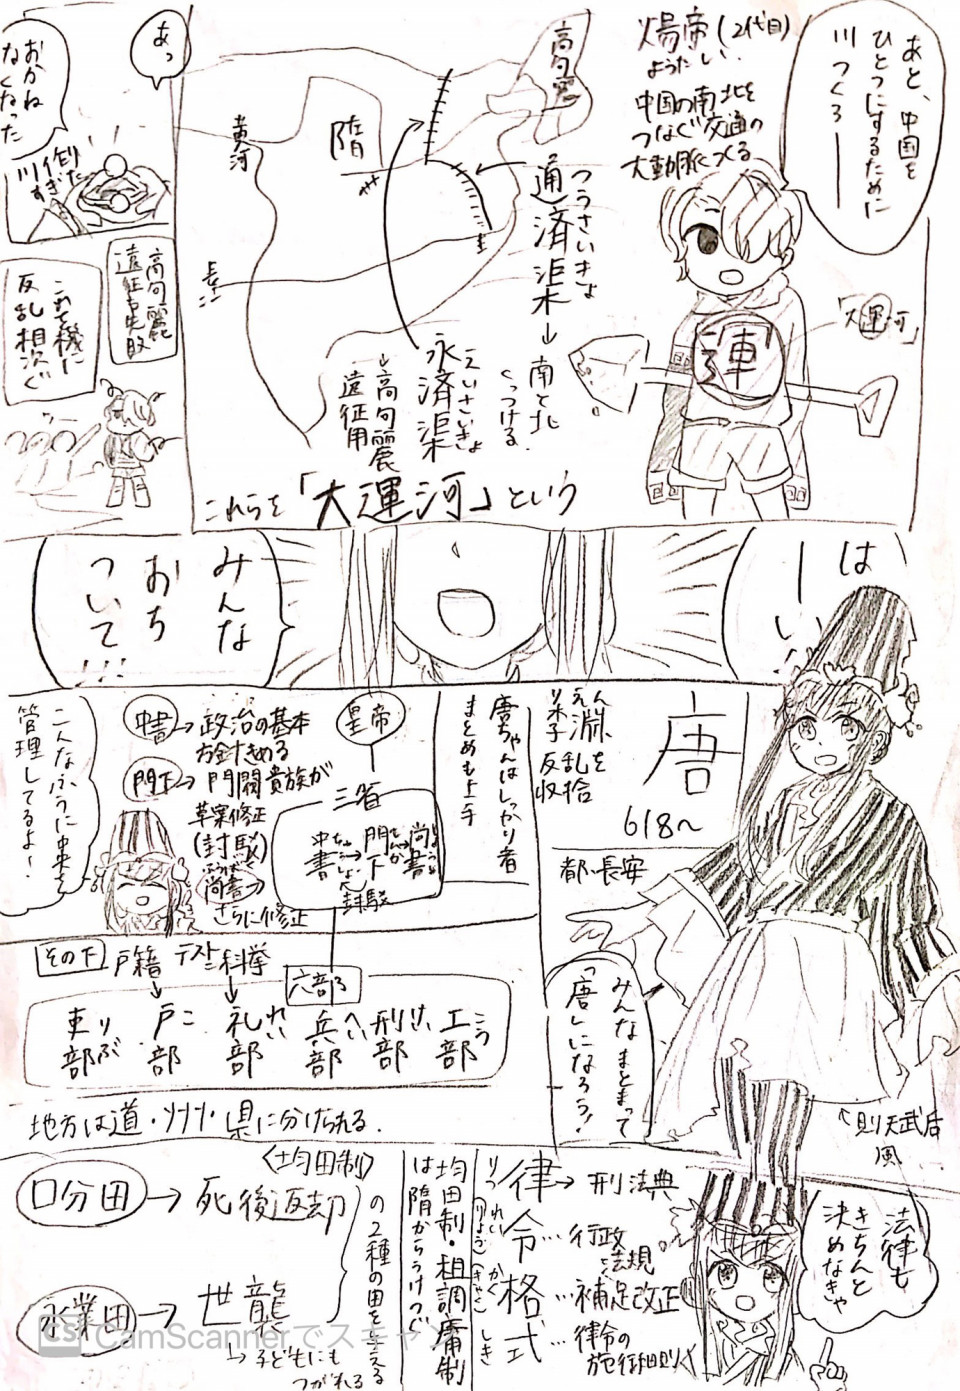 あと、中国を
ひとつにするために
川つくろーーー
煬帝(2代目)
ようだい
中国の南北を
つなぐ交通の
大動脈つくる
「大運河」
運
高句麗
隋
黄河
長江
つうさいきょ
通済渠→南と北
くっつける
えいさいきょ
永済渠
→高句麗
遠征用
これらを「大運河」という
あっ
おかね
なくなった
川作り
すぎた
高句麗
遠征失敗
これを機に
反乱相次ぐ
はーい
みんな
おち
ついて!!!
唐
618〜
都・長安
りえん
李淵
反乱を
収拾
唐ちゃんはしっかり者
まとめも上手
みんなまとまって
「唐」になろう!
↖則天武后
風
皇帝
三省
中書
門下
尚書
封駁
中書→政治の基本
方針きめる
門下→門閥貴族が
草案修正
(封駁)
尚書→
さらに修正
こんなふうに中央を
管理してるよー
その下
戸籍
テスト
科挙
六部
吏部
りぶ
戸部
こ
礼部
れい
兵部
へい
刑部
けい
工部
こう
地方は道・州・県に分けられる.
法律も
きちんと
決めなきゃ
律→刑法典
令…行政
法規
格…補足改正
式…律令の
施行細則
りつ
れい
(りょう)
かく
(きゃく)
しき
均田制・租調庸制
は隋からうけつぐ
〈均田制〉
口分田→死後返却
永業田→世襲
↳子どもにも
つがれる
の2種の田を与える
CS CamScannerでスキャン